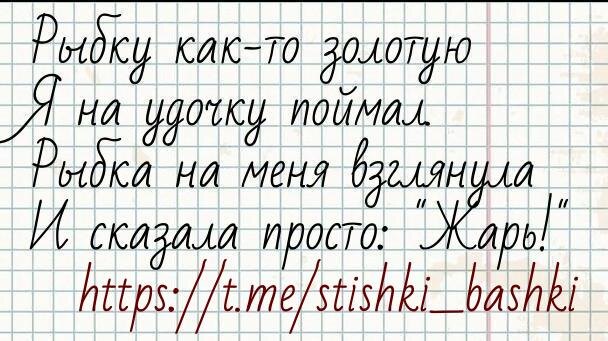 Рыбку как-то золотую
Я на удочку поймал.
Рыбка на меня взглянула
И сказала просто: "Жарь!"
https://t.me/stishki_bashki